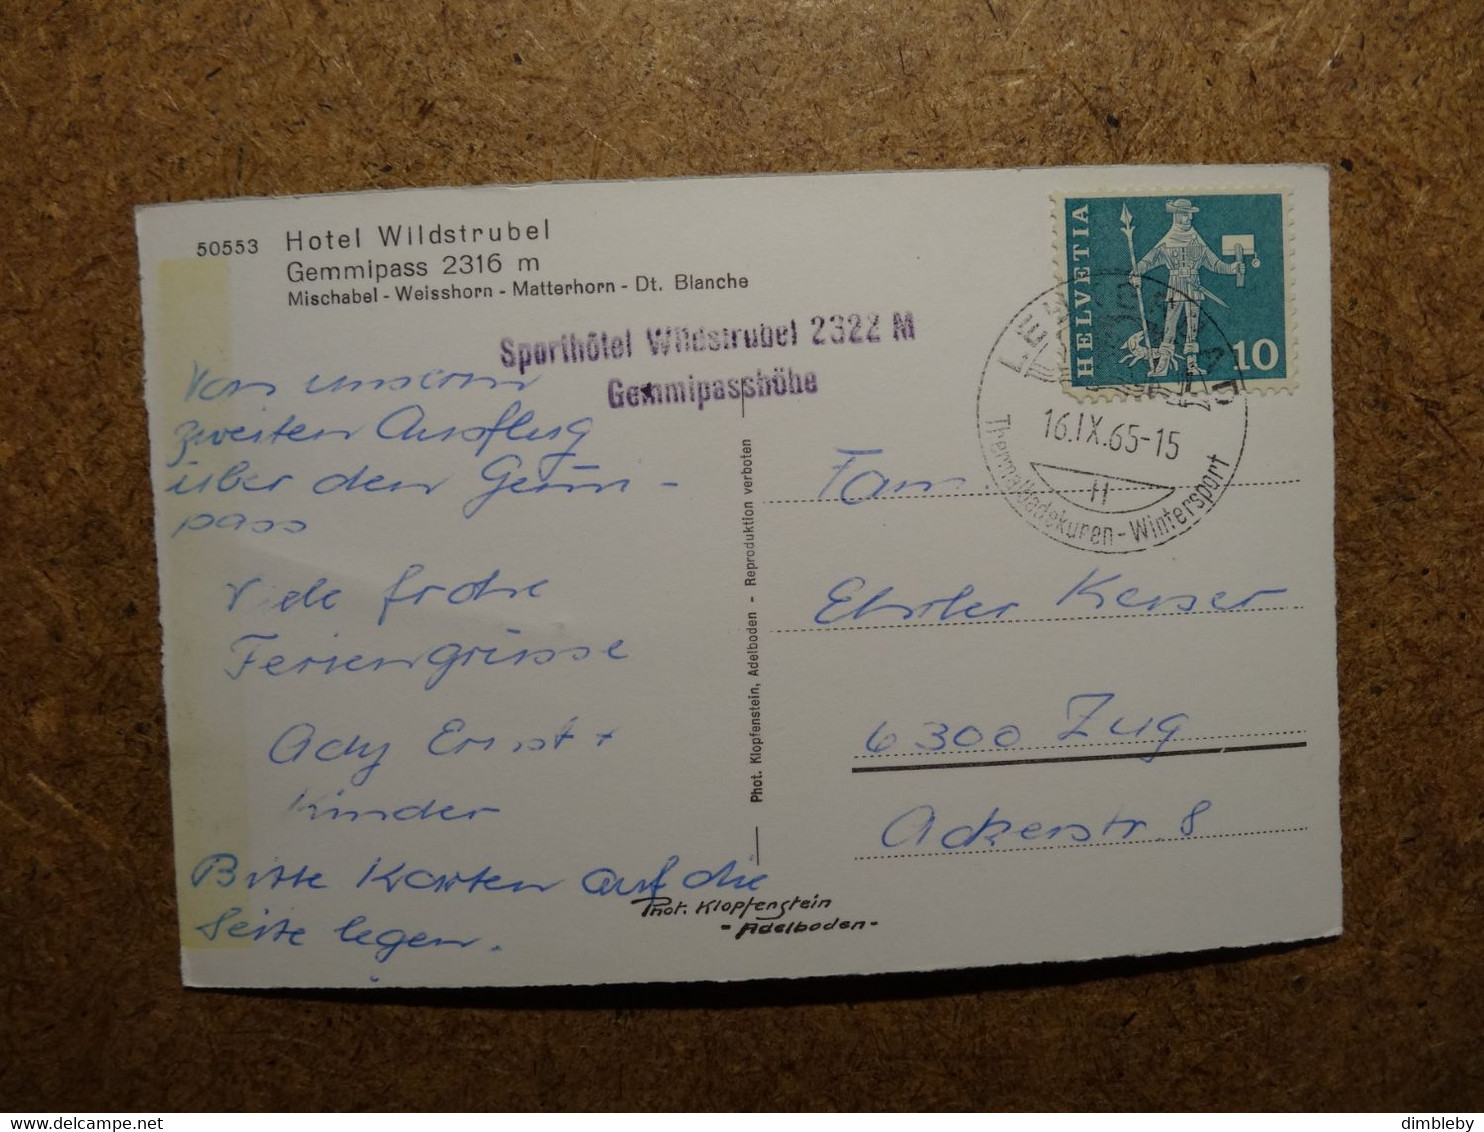 50553 Hotel Wildstrubel
Gemmipass 2316 m
Mischabel - Weisshorn - Matterhorn - Dt. Blanche
Sporthôtel Wildstrubel 2322 M
Gemmipasshöhe
HELVETIA
10
LEUKERBAD
16.IX.65-15
H
Thermalbadekuren - Wintersport
Von unserm
zweiten Ausflug
über den Gemmi-
pass
Viele frohe
Feriengrüsse
Ady Ernst +
Kinder
Bitte Karten auf die
Seite legen.
Phot. Klopfenstein, Adelboden - Reproduktion verboten
Phot. Klopfenstein
- Adelboden -
Fam
Ehrler Keiser
6300 Zug
Ackerstr. 8
dimbleby